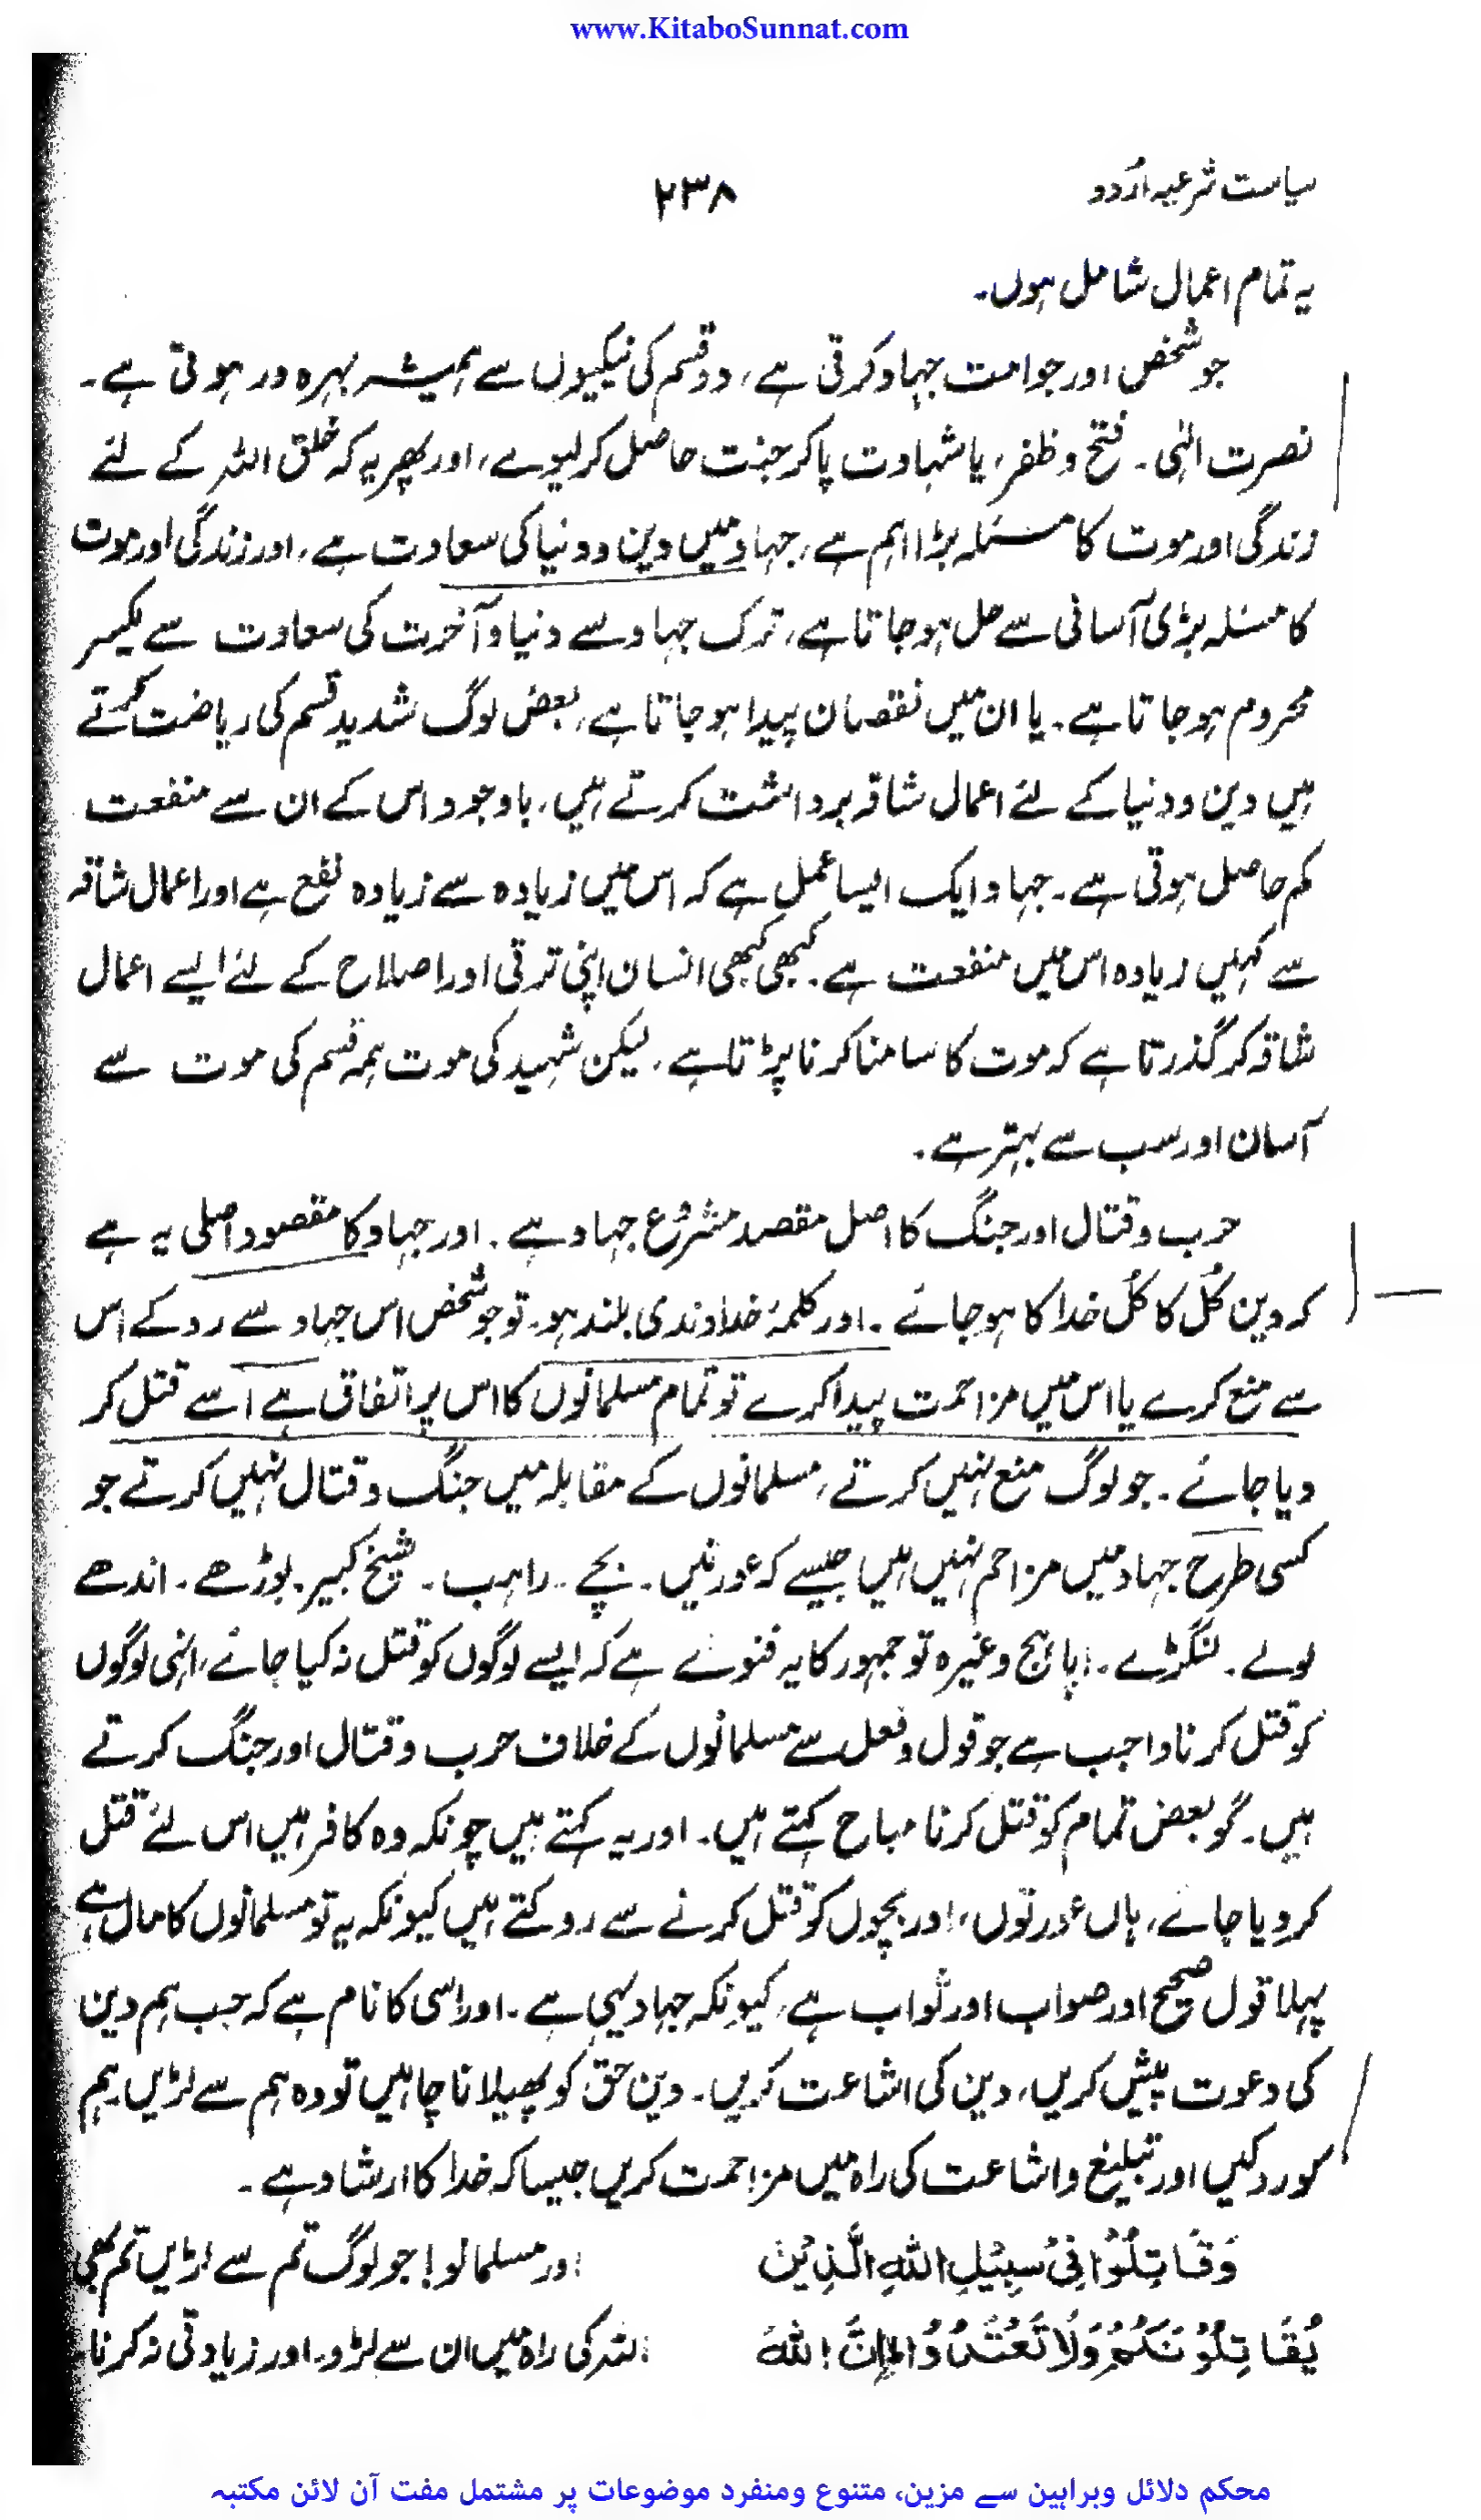 www.KitaboSunnat.com
سیاست شرعیہ اُردو
۲۳۸
یہ تمام اعمال شامل ہوں۔
جو شخص اور جو امت جہاد کرتی ہے، دو قسم کی نیکیوں سے ہمیشہ بہرہ ور ہوتی ہے۔
نصرت الٰہی۔ فتح و ظفر، یا شہادت پا کر جنت حاصل کر لیوے، اور پھر یہ کہ خلق اللہ کے لئے
زندگی اور موت کا مسئلہ بڑا اہم ہے، جہاد میں دین و دنیا کی سعادت ہے، اور زندگی اور موت
کا مسئلہ بڑی آسانی سے حل ہو جاتا ہے، ترک جہاد سے دنیا و آخرت کی سعادت سے یکسر
محروم ہو جاتا ہے۔ یا ان میں نقصان پیدا ہو جاتا ہے، بعض لوگ شدید قسم کی ریاضت کرتے
ہیں دین و دنیا کے لئے اعمال شاقہ برداشت کرتے ہیں، باوجود اس کے ان سے منفعت
کم حاصل ہوتی ہے۔ جہاد ایک ایسا عمل ہے کہ اس میں زیادہ سے زیادہ نفع ہے اور اعمال شاقہ
سے کہیں زیادہ اس میں منفعت ہے۔ کبھی کبھی انسان اپنی ترقی اور اصلاح کے لئے ایسے اعمال
شاقہ کر گذرتا ہے کہ موت کا سامنا کرنا پڑتا ہے، لیکن شہید کی موت ہمہ قسم کی موت سے
آسان اور سب سے بہتر ہے۔
حرب و قتال اور جنگ کا اصل مقصد مشروع جہاد ہے۔ اور جہاد کا مقصود اصلی یہ ہے
کہ دین کُل کا کُل خدا کا ہو جائے۔ اور کلمۂ خداوندی بلند ہو۔ تو جو شخص اس جہاد سے روکے اس
سے منع کرے یا اس میں مزاحمت پیدا کرے تو تمام مسلمانوں کا اس پر اتفاق ہے اسے قتل کر
دیا جائے۔ جو لوگ منع نہیں کرتے، مسلمانوں کے مقابلہ میں جنگ و قتال نہیں کرتے جو
کسی طرح جہاد میں مزاحم نہیں ہیں جیسے کہ عورتیں۔ بچے۔ راہب۔ شیخ کبیر۔ بوڑھے۔ اندھے
لولے۔ لنگڑے۔ اپاہج وغیرہ تو جمہور کا یہ فتوے ہے کہ ایسے لوگوں کو قتل نہ کیا جائے، انہی لوگوں
کو قتل کرنا واجب ہے جو قول و فعل سے مسلمانوں کے خلاف حرب و قتال اور جنگ کرتے
ہیں۔ گو بعض تمام کو قتل کرنا مباح کہتے ہیں۔ اور یہ کہتے ہیں چونکہ وہ کافر ہیں اس لئے قتل
کر دیا جائے، ہاں عورتوں، اور بچوں کو قتل کرنے سے روکتے ہیں کیونکہ یہ تو مسلمانوں کا مال ہے
پہلا قول صحیح اور صواب اور ثواب ہے، کیونکہ جہاد یہی ہے۔ اور اسی کا نام ہے کہ جب ہم دین
کی دعوت پیش کریں، دین کی اشاعت کریں۔ دین حق کو پھیلانا چاہیں تو وہ ہم سے لڑیں ہم
کو روکیں اور تبلیغ و اشاعت کی راہ میں مزاحمت کریں جیسا کہ خدا کا ارشاد ہے۔
وَقَاتِلُوْا فِیْ سَبِیْلِ اللّٰهِ الَّذِیْنَ
اور مسلمانو! جو لوگ تم سے لڑیں تم بھی
یُقَاتِلُوْنَکُمْ وَلَا تَعْتَدُوْا اِنَّ اللّٰهَ
اللہ کی راہ میں ان سے لڑو۔ اور زیادتی نہ کرنا۔
محکم دلائل وبراہین سے مزین، متنوع ومنفرد موضوعات پر مشتمل مفت آن لائن مکتبہ